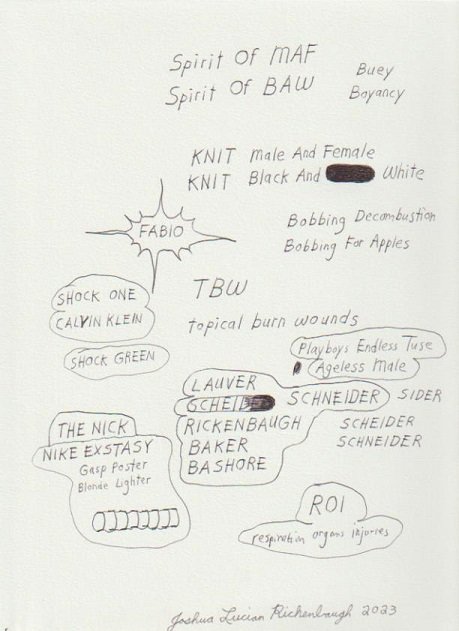 Spirit Of MAF
Spirit Of BAW
Buey
Bayancy
KNIT Male And Female
KNIT Black And White
FABIO
Bobbing Decombustion
Bobbing For Apples
TBW
topical burn wounds
SHOCK ONE
CALVIN KLEIN
SHOCK GREEN
Playboys Endless Tuse
Ageless Male
LAUVER
GCHEID SCHNEIDER SIDER
RICKENBAUGH
BAKER
BASHORE
SCHEIDER
SCHNEIDER
THE NICK
NIKE EXSTASY
Gasp Poster
Blonde Lighter
ROI
respiration organs injuries
Joshua Lucian Rickenbaugh 2023